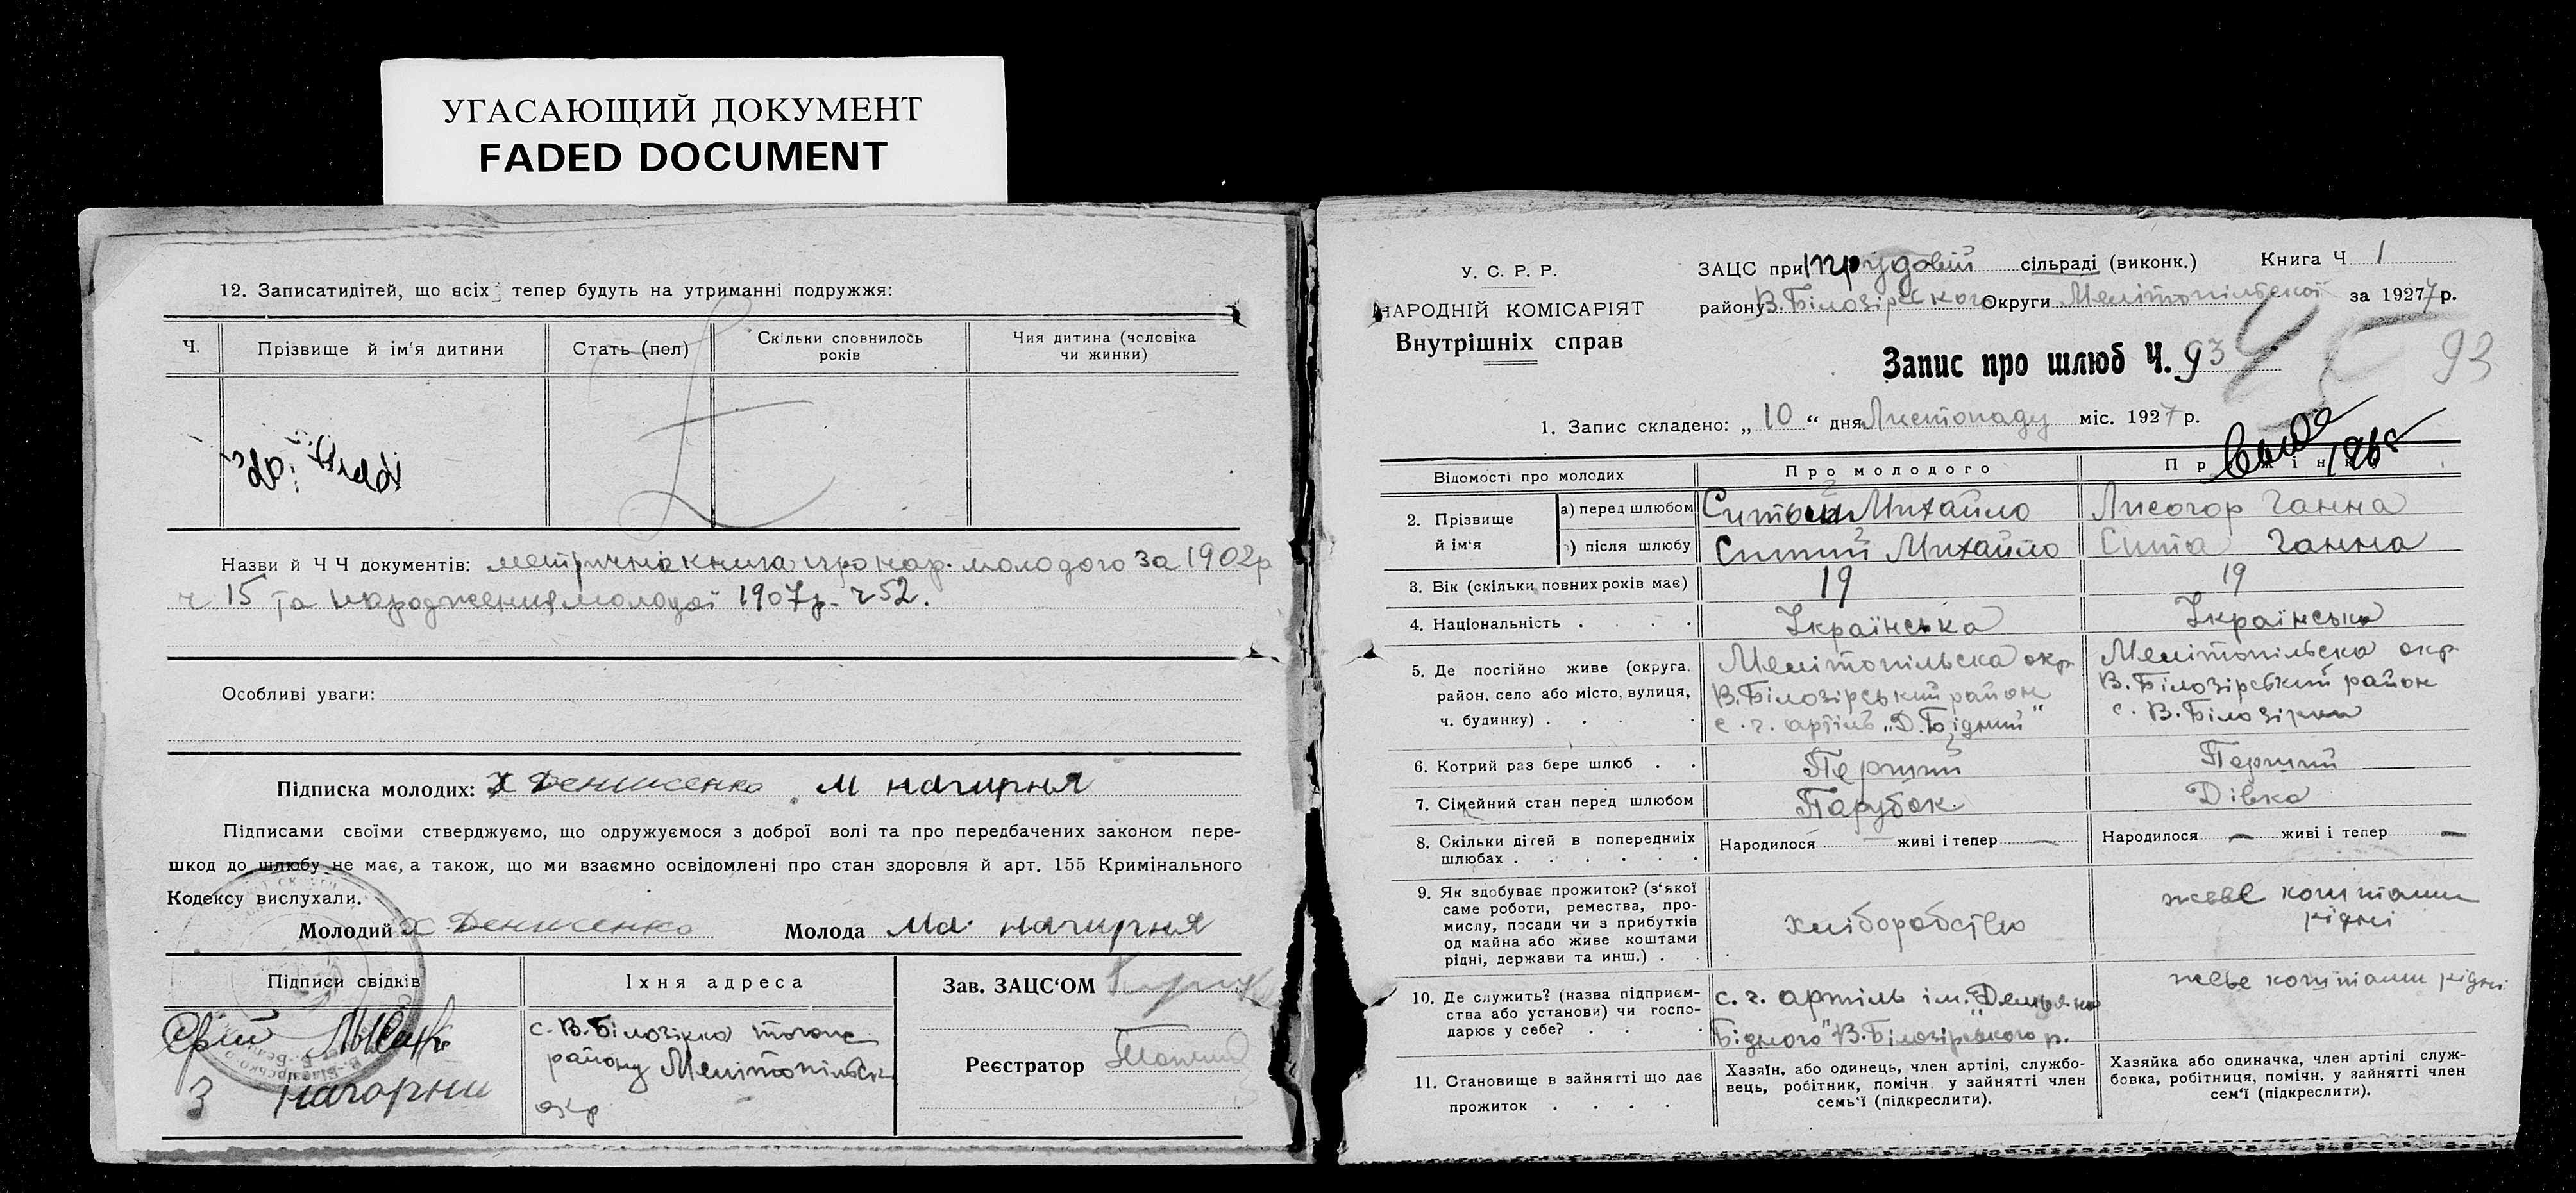 УГАСАЮЩИЙ ДОКУМЕНТ
FADED DOCUMENT
12. Записати дітей, що всіх тепер будуть на утриманні подружжя:
Ч.
Прізвище й ім'я дитини
Стать (пол)
Скільки сповнилось
років
Чия дитина (чоловіка
чи жинки)
Назви й Ч Ч документів: метрична книга про нар. молодого за 1902р
ч 15 та народження молодої 1907р. ч 52.
Особливі уваги:
Підписка молодих: Х Денисенко М нагирня
Підписами своїми стверджуємо, що одружуємося з доброї волі та про передбачених законом пере-
шкод до шлюбу не має, а також, що ми взаємно освідомлені про стан здоровля й арт. 155 Кримінального
Кодексу вислухали.
Молодий Х Денисенко Молода Ма нагирня
Підписи свідків
Їхня адреса
Зав. ЗАЦС'ОМ
с. В. Білозірка тогож
району Мелітопільськ
окр
Реєстратор
З нагорни
У. С. Р. Р.
НАРОДНІЙ КОМІСАРІЯТ
Внутрішніх справ
ЗАЦС при Трудовій сільраді (виконк.) Книга Ч 1
району В. Білозірского Округи Мелітопільської за 1927 р.
Запис про шлюб Ч. 93
93
1. Запис складено: „ 10 “ дня Листопаду міс. 1927 р.
Відомості про молодих
Про молодого
2. Прізвище
й ім'я
а) перед шлюбом
Ситый Михайло
Лисогор Ганна
після шлюбу
Ситий Михайло
Сита Ганна
3. Вік (скільки повних років має)
19
19
4. Національність
Українська
Українська
5. Де постійно живе (округа,
район, село або місто, вулиця,
ч. будинку)
Мелітопільска окр
В. Білозірський район
с. г. артіль „Д. Бідний"
Мелітопільска окр
В. Білозірський район
с. В. Білозірки
6. Котрий раз бере шлюб
Перший
Перший
7. Сімейний стан перед шлюбом
Парубок
Дівка
8. Скільки дітей в попередніх
шлюбах
Народилося — живі і тепер —
Народилося — живі і тепер —
9. Як здобуває прожиток? (з'якої
саме роботи, ремества, про-
мислу, посади чи з прибутків
од майна або живе коштами
рідні, держави та инш.)
хліборобство
живе коштами
рідні
10. Де служить? (назва підприєм-
ства або установи) чи госпо-
дарює у себе?
с. г. артіль ім. „Демьяна
Бідного" В. Білозірського р.
живе коштами рідні
11. Становище в зайнятті що дає
прожиток
Хазяїн, або одинець, член артілі, службо-
вець, робітник, помічн. у зайнятті член
семь'ї (підкреслити).
Хазяйка або одиначка, член артілі служ-
бовка, робітниця, помічн. у зайнятті член
сем'ї (підкреслити).